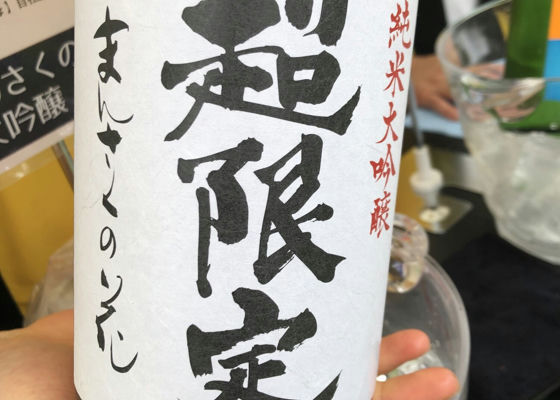 純米大吟醸
超限定
まんさくの花
さくの
吟醸